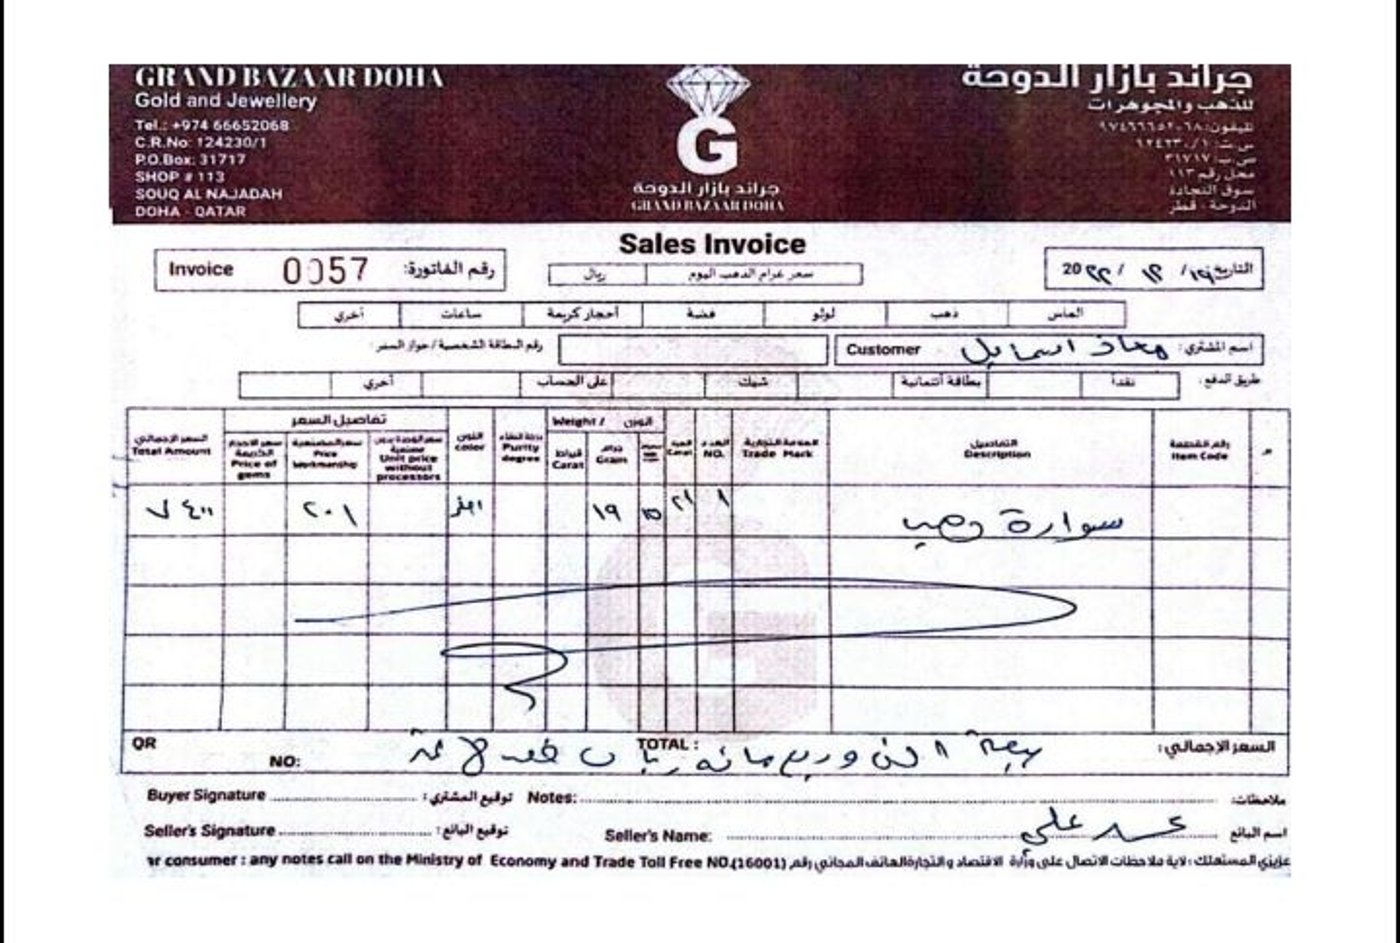 GRAND BAZAAR DOHA
Gold and Jewellery
Tel.: +974 66652068
C.R.No: 124230/1
P.O.Box: 31717
SHOP # 113
SOUQ AL NAJADAH
DOHA - QATAR
G
جراند بازار الدوحة
GRAND BAZAAR DOHA
جراند بازار الدوحة
للذهب والمجوهرات
تليفون: ٩٧٤٦٦٦٥٢٠٦٨
س.ت: ١٢٤٢٣٠/١
ص.ب: ٣١٧١٧
محل رقم ١١٣
سوق النجادة
الدوحة - قطر
Sales Invoice
Invoice 0057 رقم الفاتورة:
سعر غرام الذهب اليوم ريال
التاريخ / ١٢ / 20٢٢
الماس ذهب لولو فضة أحجار كريمة ساعات أخرى
اسم المشتري: معاذ اسماعيل Customer
رقم البطاقة الشخصية / جواز السفر:
طريق الدفع: نقداً بطاقة أئتمانية شيك على الحساب أخرى
تفاصيل السعر
السعر الإجمالي
Total Amount
Price of gems
Price Workmanship
Unit price without processors
اللون
color
Purity degree
Weight / الوزن
قيراط
Carat
جرام
Gram
Carat
العدد
NO.
العلامة التجارية
Trade Mark
التفاصيل
Description
رقم القطعة
Item Code
م
سوارة ذهب ١ ٢١ ١٩ اصفر ٢٠١ ٧٤٠٠
QR
NO:
TOTAL:
السعر الإجمالي:
سبعة الف و ربع مائه ريال
Buyer Signature توقيع المشتري:
Notes: ملاحظات:
Seller's Signature توقيع البائع:
Seller's Name: علي اسم البائع
ar consumer : any notes call on the Ministry of Economy and Trade Toll Free NO.(16001) عزيزي المستهلك : لاية ملاحظات الاتصال على وزارة الاقتصاد والتجارة الهاتف المجاني رقم